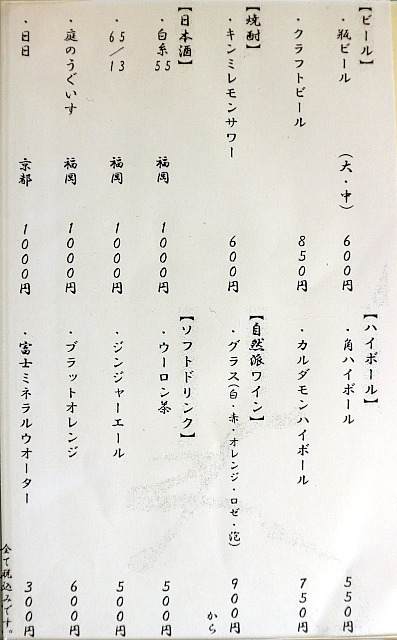 【ビール】
・瓶ビール （大・中） 600円
・クラフトビール 850円
【焼酎】
・キンミレモンサワー 600円
【日本酒】
・白糸55 福岡 1000円
・65／13 福岡 1000円
・庭のうぐいす 福岡 1000円
・日日 京都 1000円
【ハイボール】
・角ハイボール 550円
・カルダモンハイボール 750円
【自然派ワイン】
・グラス（白・赤・オレンジ・ロゼ・泡） 900円から
【ソフトドリンク】
・ウーロン茶 500円
・ジンジャーエール 500円
・ブラットオレンジ 600円
・富士ミネラルウオーター 300円
全て税込みです。